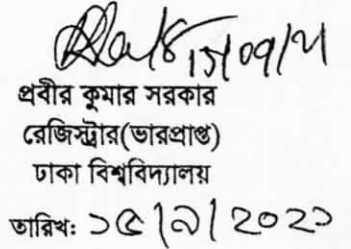 ১৫/০৯/২১
প্রবীর কুমার সরকার
রেজিস্ট্রার(ভারপ্রাপ্ত)
ঢাকা বিশ্ববিদ্যালয়
তারিখঃ ১৫/৯/২০২১